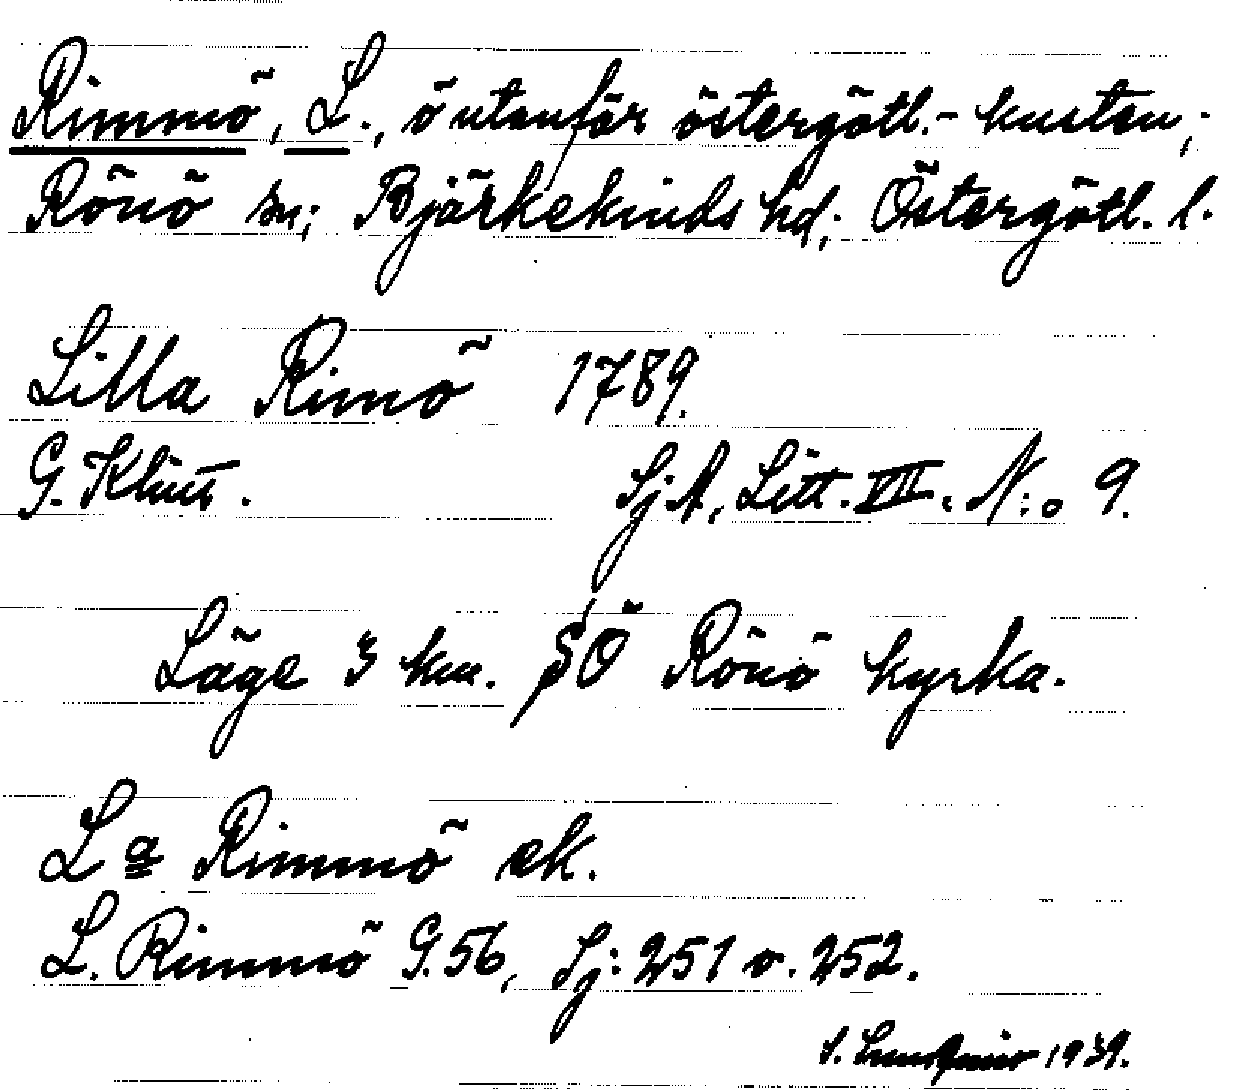 Rimmö, L., ö utanför östergötl.- kusten;
Rönö sn; Bjärkekinds hd; Östergötl. l.
Lilla Rimö 1789.
G. Klint. Sj A, Litt. VII. N:o 9.
Läge 3 km. SÖ Rönö kyrka.
La Rimmö ek.
L. Rimmö G. 56, Sj: 251 o. 252.
1939.